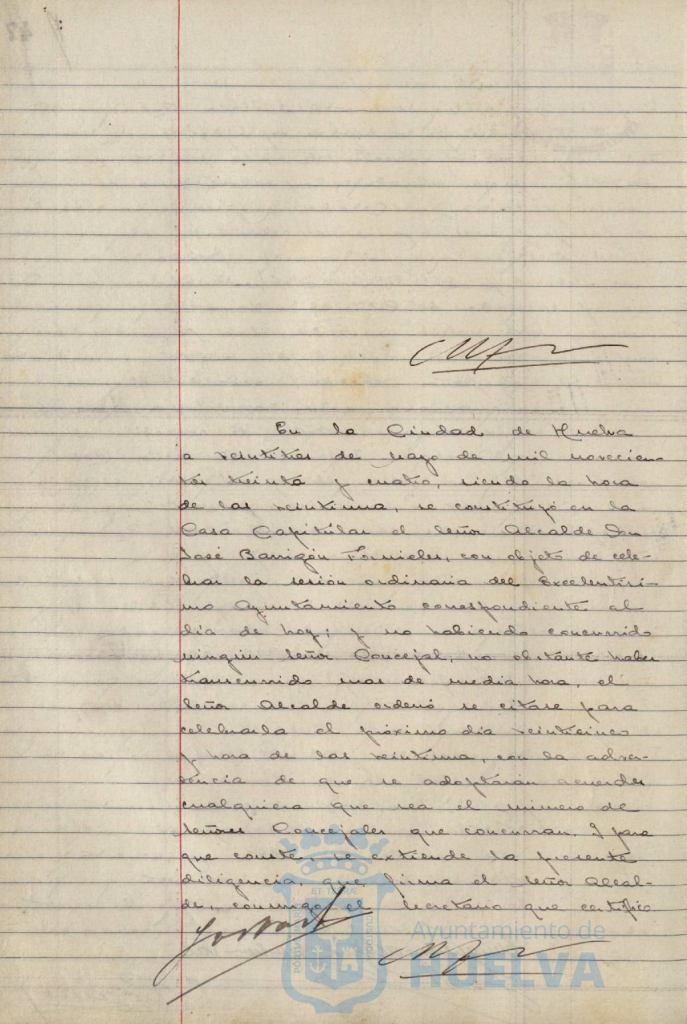 En la Ciudad de Huelva
a veintitres de mayo de mil novecien-
tos treinta y cuatro, siendo la hora
de las veintiuna, se constituyó en la
Casa Capitular el Señor Alcalde Don
José Barrigón Fornieles, con objeto de cele-
brar la sesión ordinaria del Excelentísi-
mo Ayuntamiento correspondiente al
día de hoy; y no habiendo concurrido
ningún Señor Concejal, no obstante haber
transcurrido mas de media hora, el
Señor Alcalde ordenó se citase para
celebrarla el próximo día veinticinco
y hora de las veintiuna, con la adver-
tencia de que se adoptarán acuerdos
cualquiera que sea el número de
Señores Concejales que concurran. Y para
que conste, se extiende la presente
diligencia, que firma el Señor Alcal-
de, conmigo el Secretario que certifico
Ayuntamiento de
HUELVA